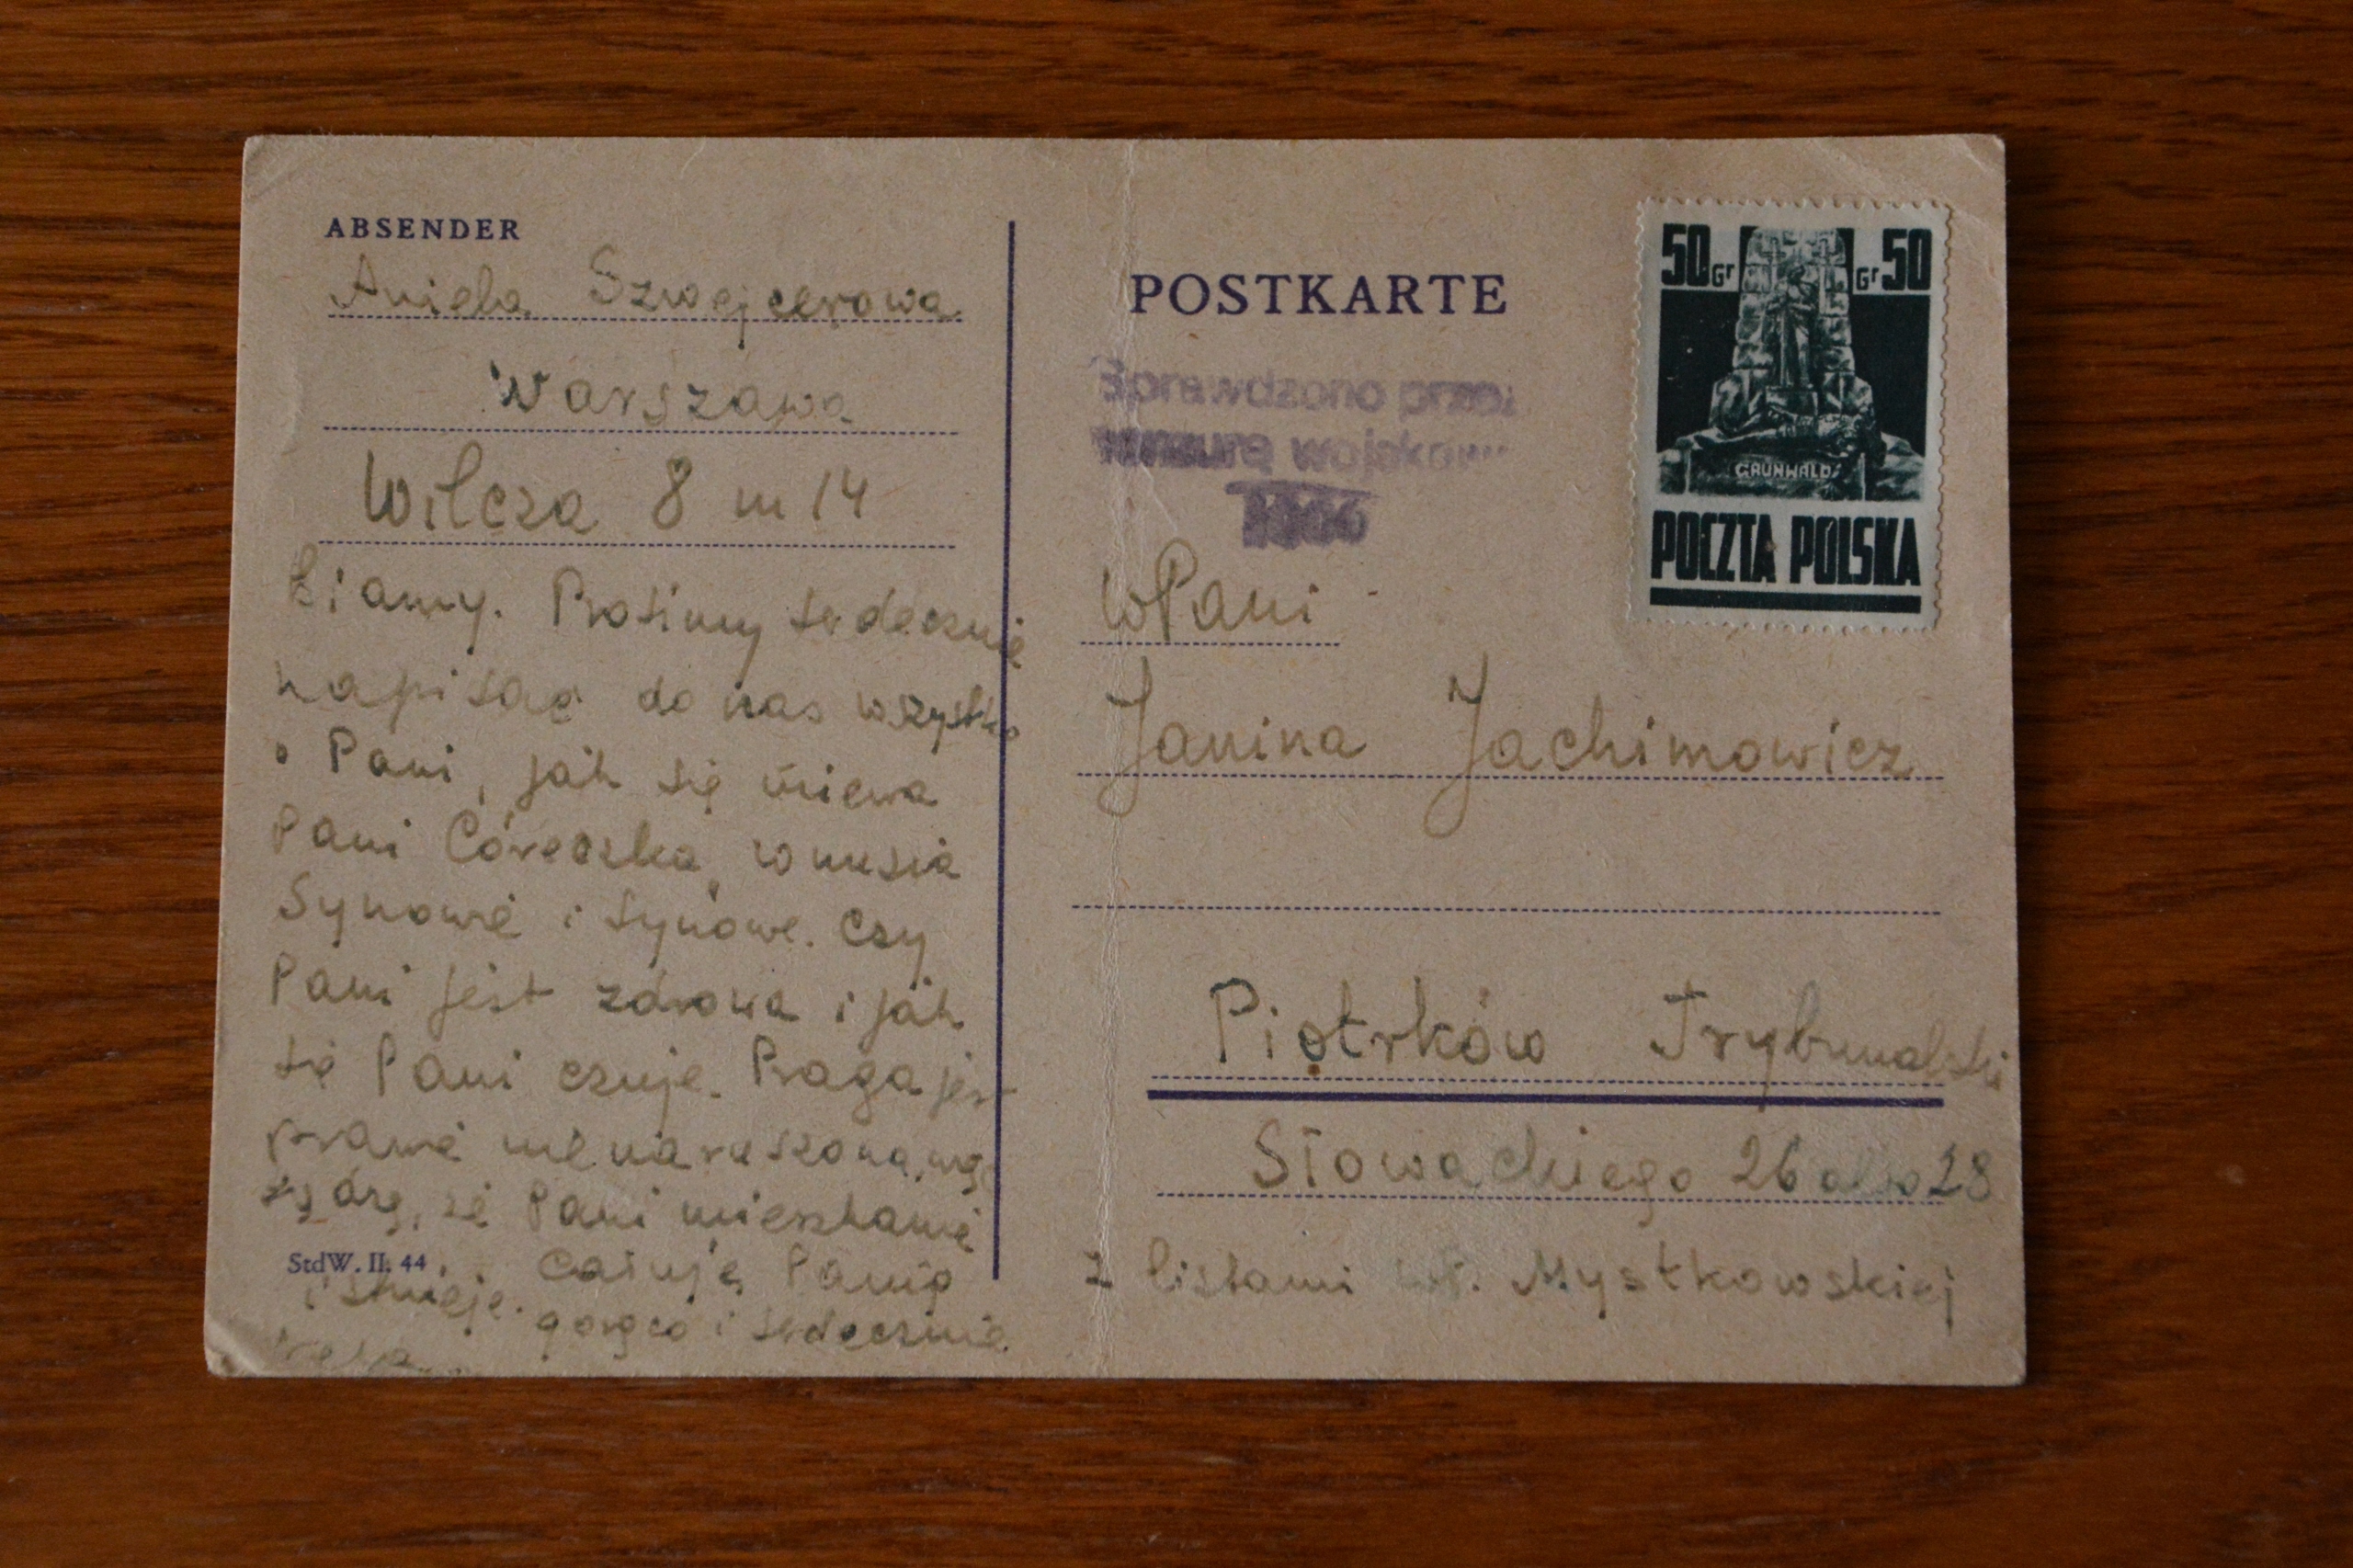 ABSENDER
Aniela Szwejcerowa
Warszawa
Wilcza 8 m 14
biamy. Prosimy serdecznie
napisać do nas wszystko
o Pani, jak się miewa
Pani Córeczka, wnusia
Synowie i synowe. Czy
Pani jest zdrowa i jak
się Pani czuje. Praga jest
prawie nienaruszona,
że Pani mieszkanie
StdW. II. 44
istnieje. Całuję Panią
gorąco i serdecznie.
POSTKARTE
Sprawdzono przez
cenzurę wojskową
50 Gr Gr 50
GRUNWALD
POCZTA POLSKA
WPani
Janina Jachimowicz
Piotrków Trybunalski
Słowackiego 26 albo 28
z listami Mystkowskiej